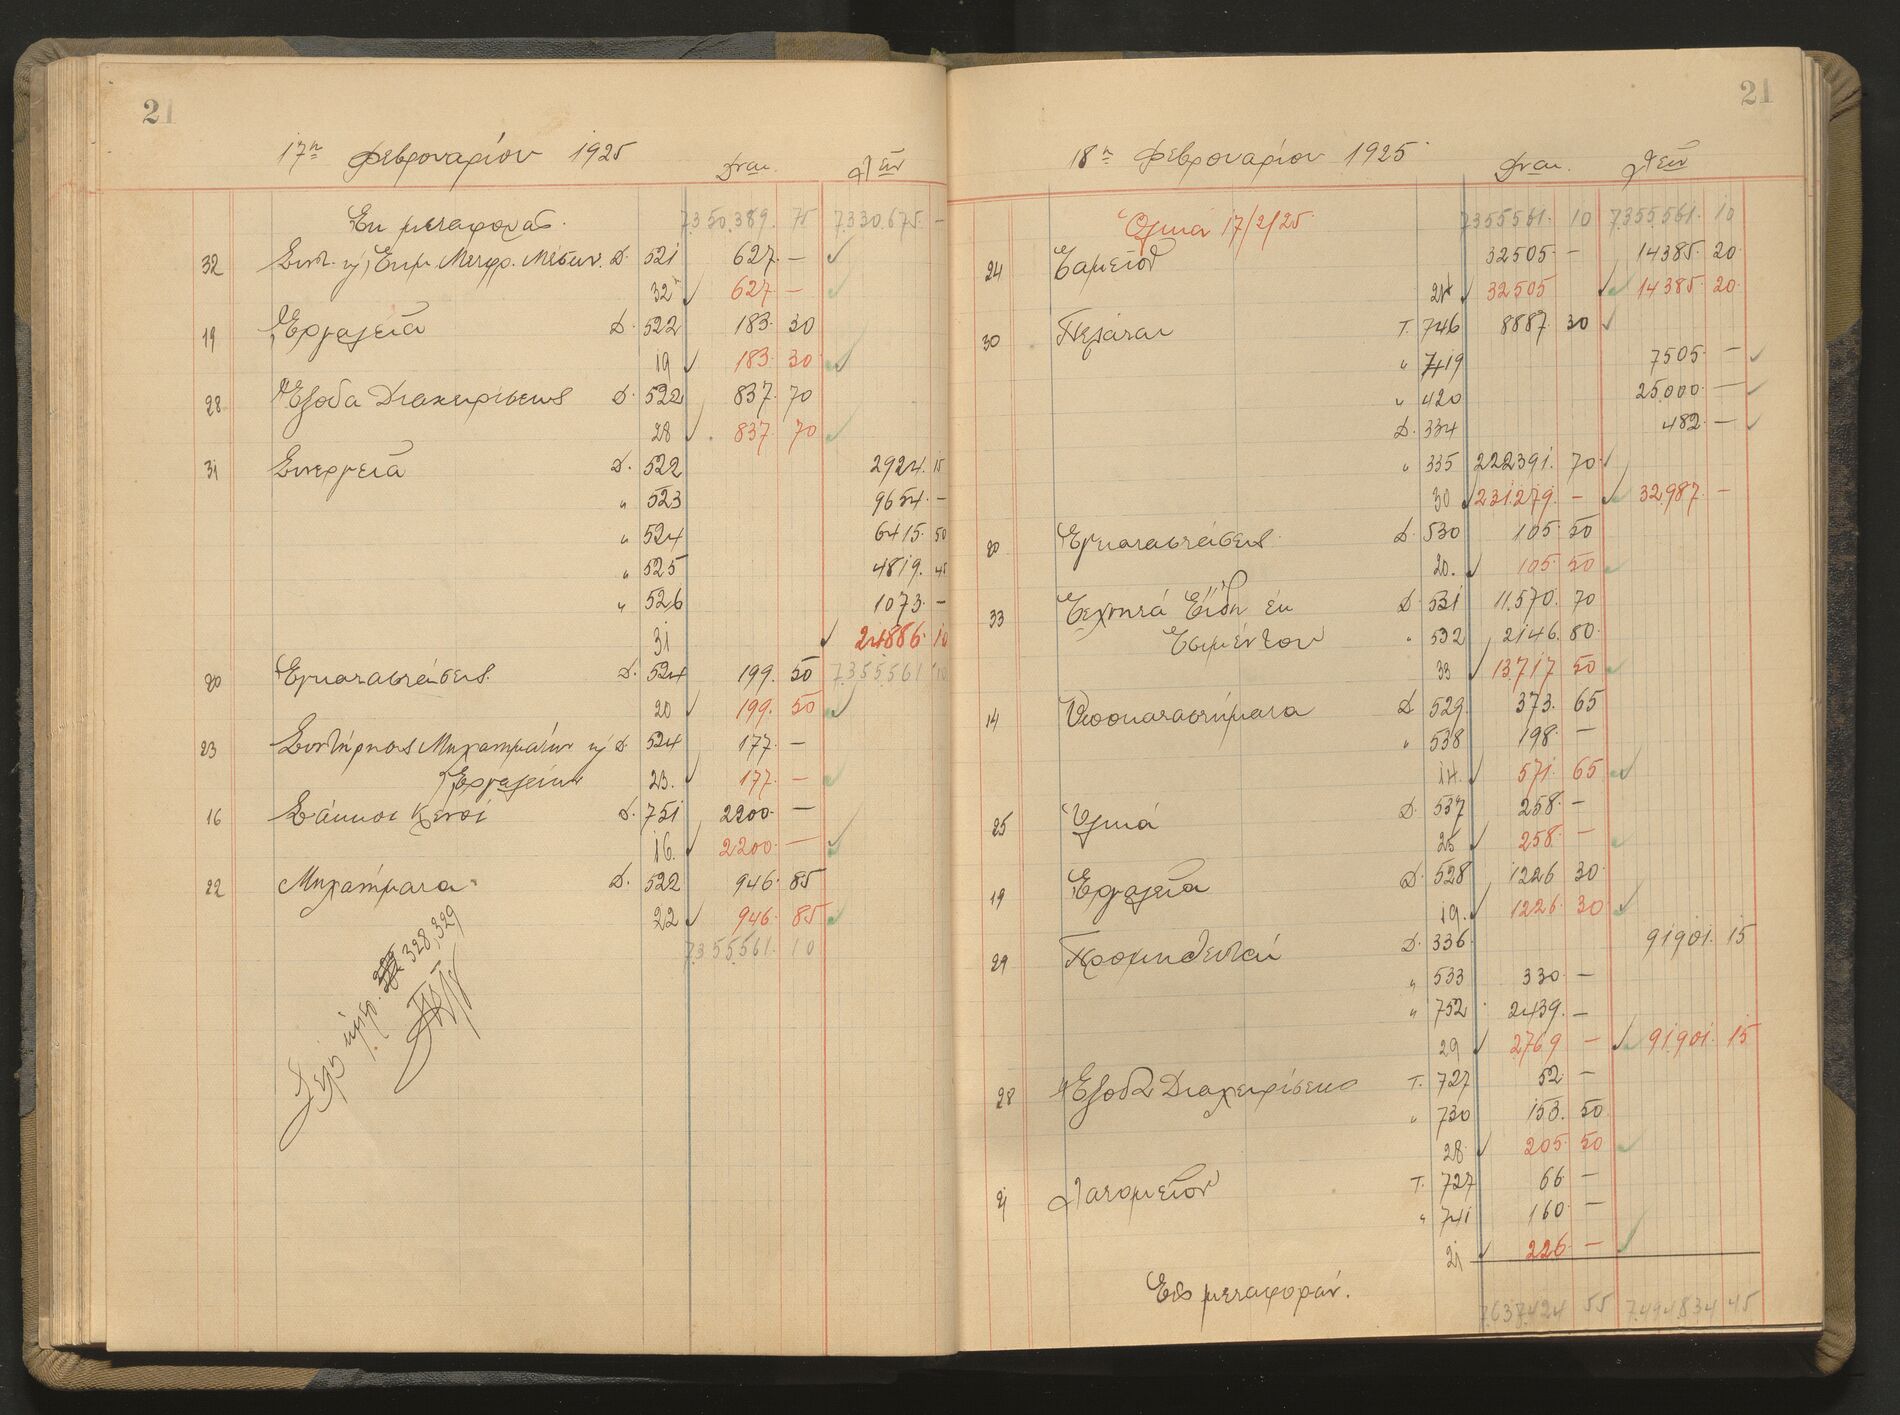 21
17η Φεβρουαρίου 1925
Δναι. Λτειν
Εκ μεταφοράς. 7.350.389. 75 7.330.675. —
32 Συντ. κ' Εκμ. Μεταφ. Μέσων. Δ. 521 627. —
32 627 —
19 Εργαλεία Δ. 522 183. 30
19 183. 30
28 Έξοδα Διαχειρίσεως Δ. 522 837. 70
28 837. 70
31 Συνεργεία Δ. 522 2924. 15
" 523 9654. —
" 524 6415. 50
" 525 4819. 45
" 526 1073. —
31 24886. 10
20 Εγκαταστάσεις. Δ. 524 199. 50 7.355.561 10
20 199. 50
23 Συντήρησις Μηχανημάτων κ' Δ. 524 177. —
Εργαλείων 23. 177. —
16 Σάκκοι Κενοί Δ. 751 2200. —
16. 2200. —
22 Μηχανήματα Δ. 522 946. 85
22 946. 85
7.355.561. 10
328, 329
21
18η Φεβρουαρίου 1925.
Δναι. Λτειν
Ολικά 17/2/25. 7.355.561. 10 7.355.561. 10
24 Ταμείον 32505 — 14385. 20.
24 32505 14385. 20.
30 Πελάται Τ. 746 8887. 30
" 419 7505. —
" 420 25.000. —
Δ. 334 482. —
" 335 222391. 70
30 231.279. — 32.987. —
20 Εγκαταστάσεις. Δ. 530 105. 50
20. 105. 50
33 Τεχνητά Είδη εκ Δ. 531 11.570. 70
Τσιμέντου " 532 2146. 80.
33 13.717 50
14 Υποκαταστήματα Δ. 529. 373. 65
" 538 198. —
14. 571. 65
25 Υλικά Δ. 537 258. —
25 258. —
19 Εργαλεία Δ. 528 1226 30.
19. 1226. 30.
29 Προμηθευταί Δ. 336. 91.901. 15
" 533 330. —
" 752 2439. —
29 2769 — 91.901. 15
28 Έξοδα Διαχειρίσεως Τ. 727 52. —
" 730 153. 50.
28. 205. 50
21 Λατομείον Τ. 727 66. —
" 741 160. —
21 226. —
Εις μεταφοράν.
7.637.424 55 7.494.834 45